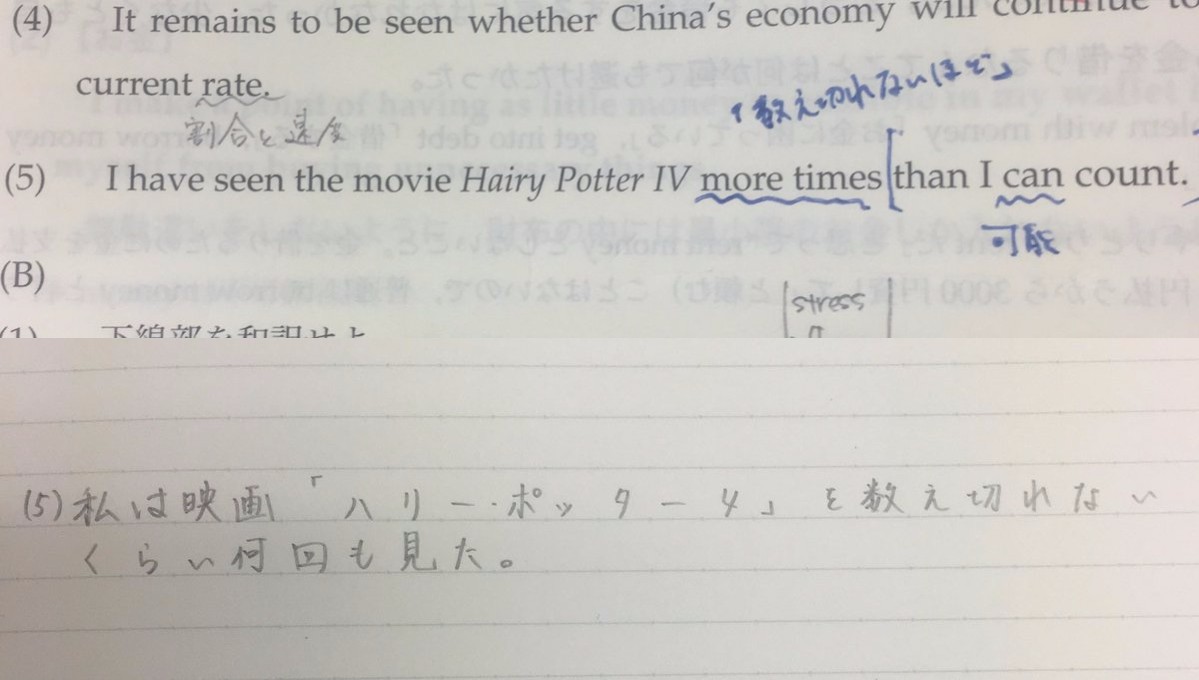 (4) It remains to be seen whether China's economy will continue to
current rate.
割合と速金
「数え切れないほど」
(5) I have seen the movie Hairy Potter IV more times than I can count.
可能
(B)
stress
(1) 下線部を和訳せよ
(5) 私は映画「ハリー・ポッター4」を数え切れない
くらい何回も見た。